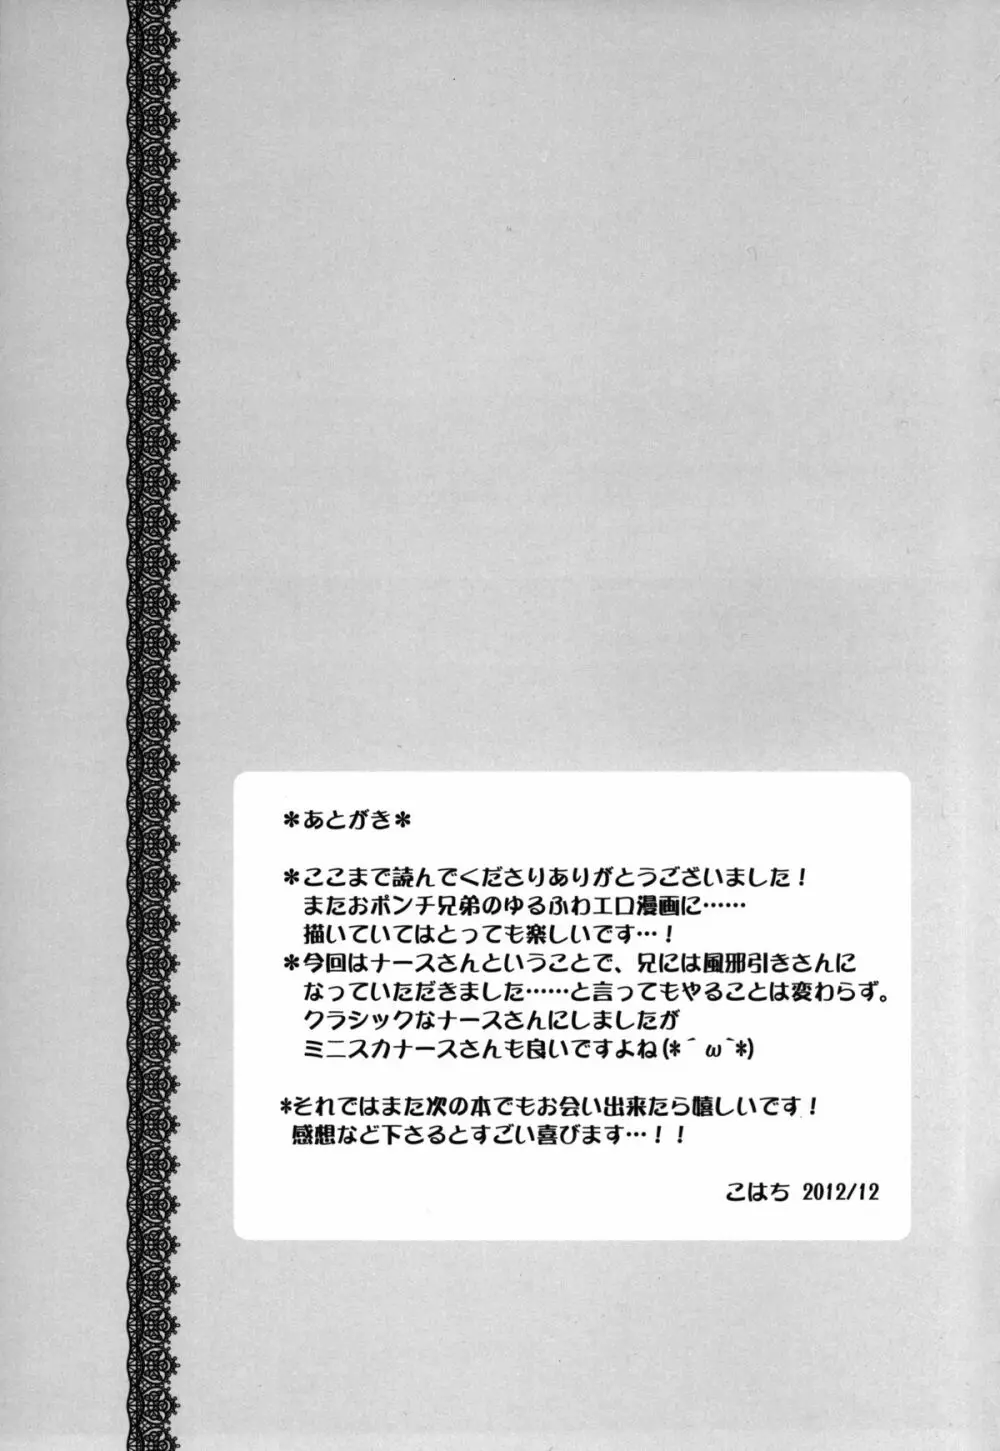 ＊あとがき＊
＊ここまで読んでくださりありがとうございました！
またおボンチ兄弟のゆるふわエロ漫画に……
描いていてはとっても楽しいです…！
＊今回はナースさんということで、兄には風邪引きさんに
なっていただきました……と言ってもやることは変わらず。
クラシックなナースさんにしましたが
ミニスカナースさんも良いですよね(*´ω`*)
*それではまた次の本でもお会い出来たら嬉しいです！
感想など下さるとすごい喜びます…！！
こはち 2012/12